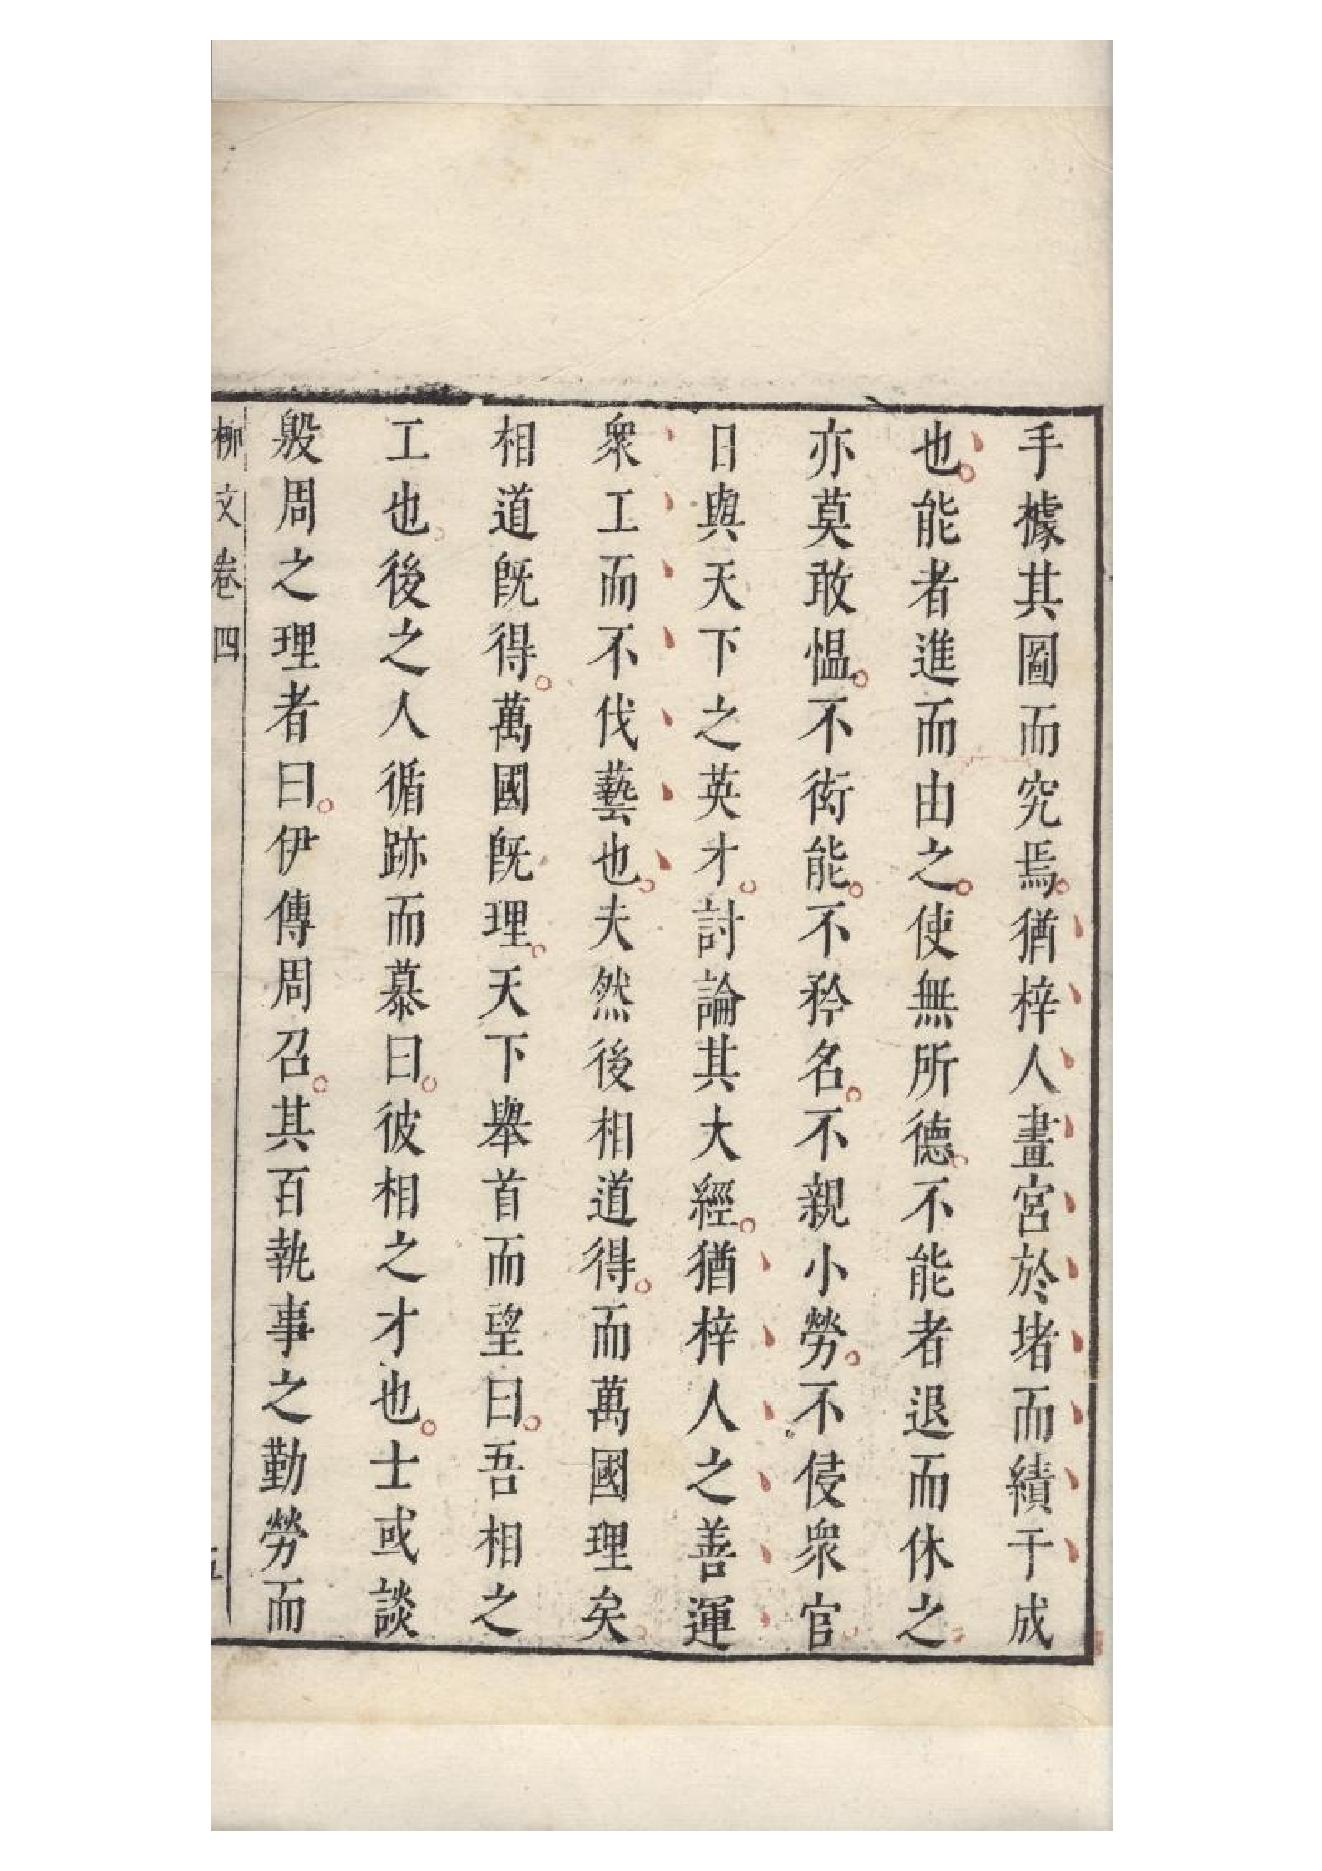 手據其圖而究焉猶梓人畫宮於堵而績于成
也能者進而由之使無所德不能者退而休之
亦莫敢愠不衒能不矜名不親小勞不侵衆官
日與天下之英才討論其大經猶梓人之善運
衆工而不伐藝也夫然後相道得而萬國理矣
相道旣得萬國旣理天下舉首而望曰吾相之
工也後之人循跡而慕曰彼相之才也士或談
殷周之理者曰伊傅周召其百執事之勤勞而
柳文卷四
五